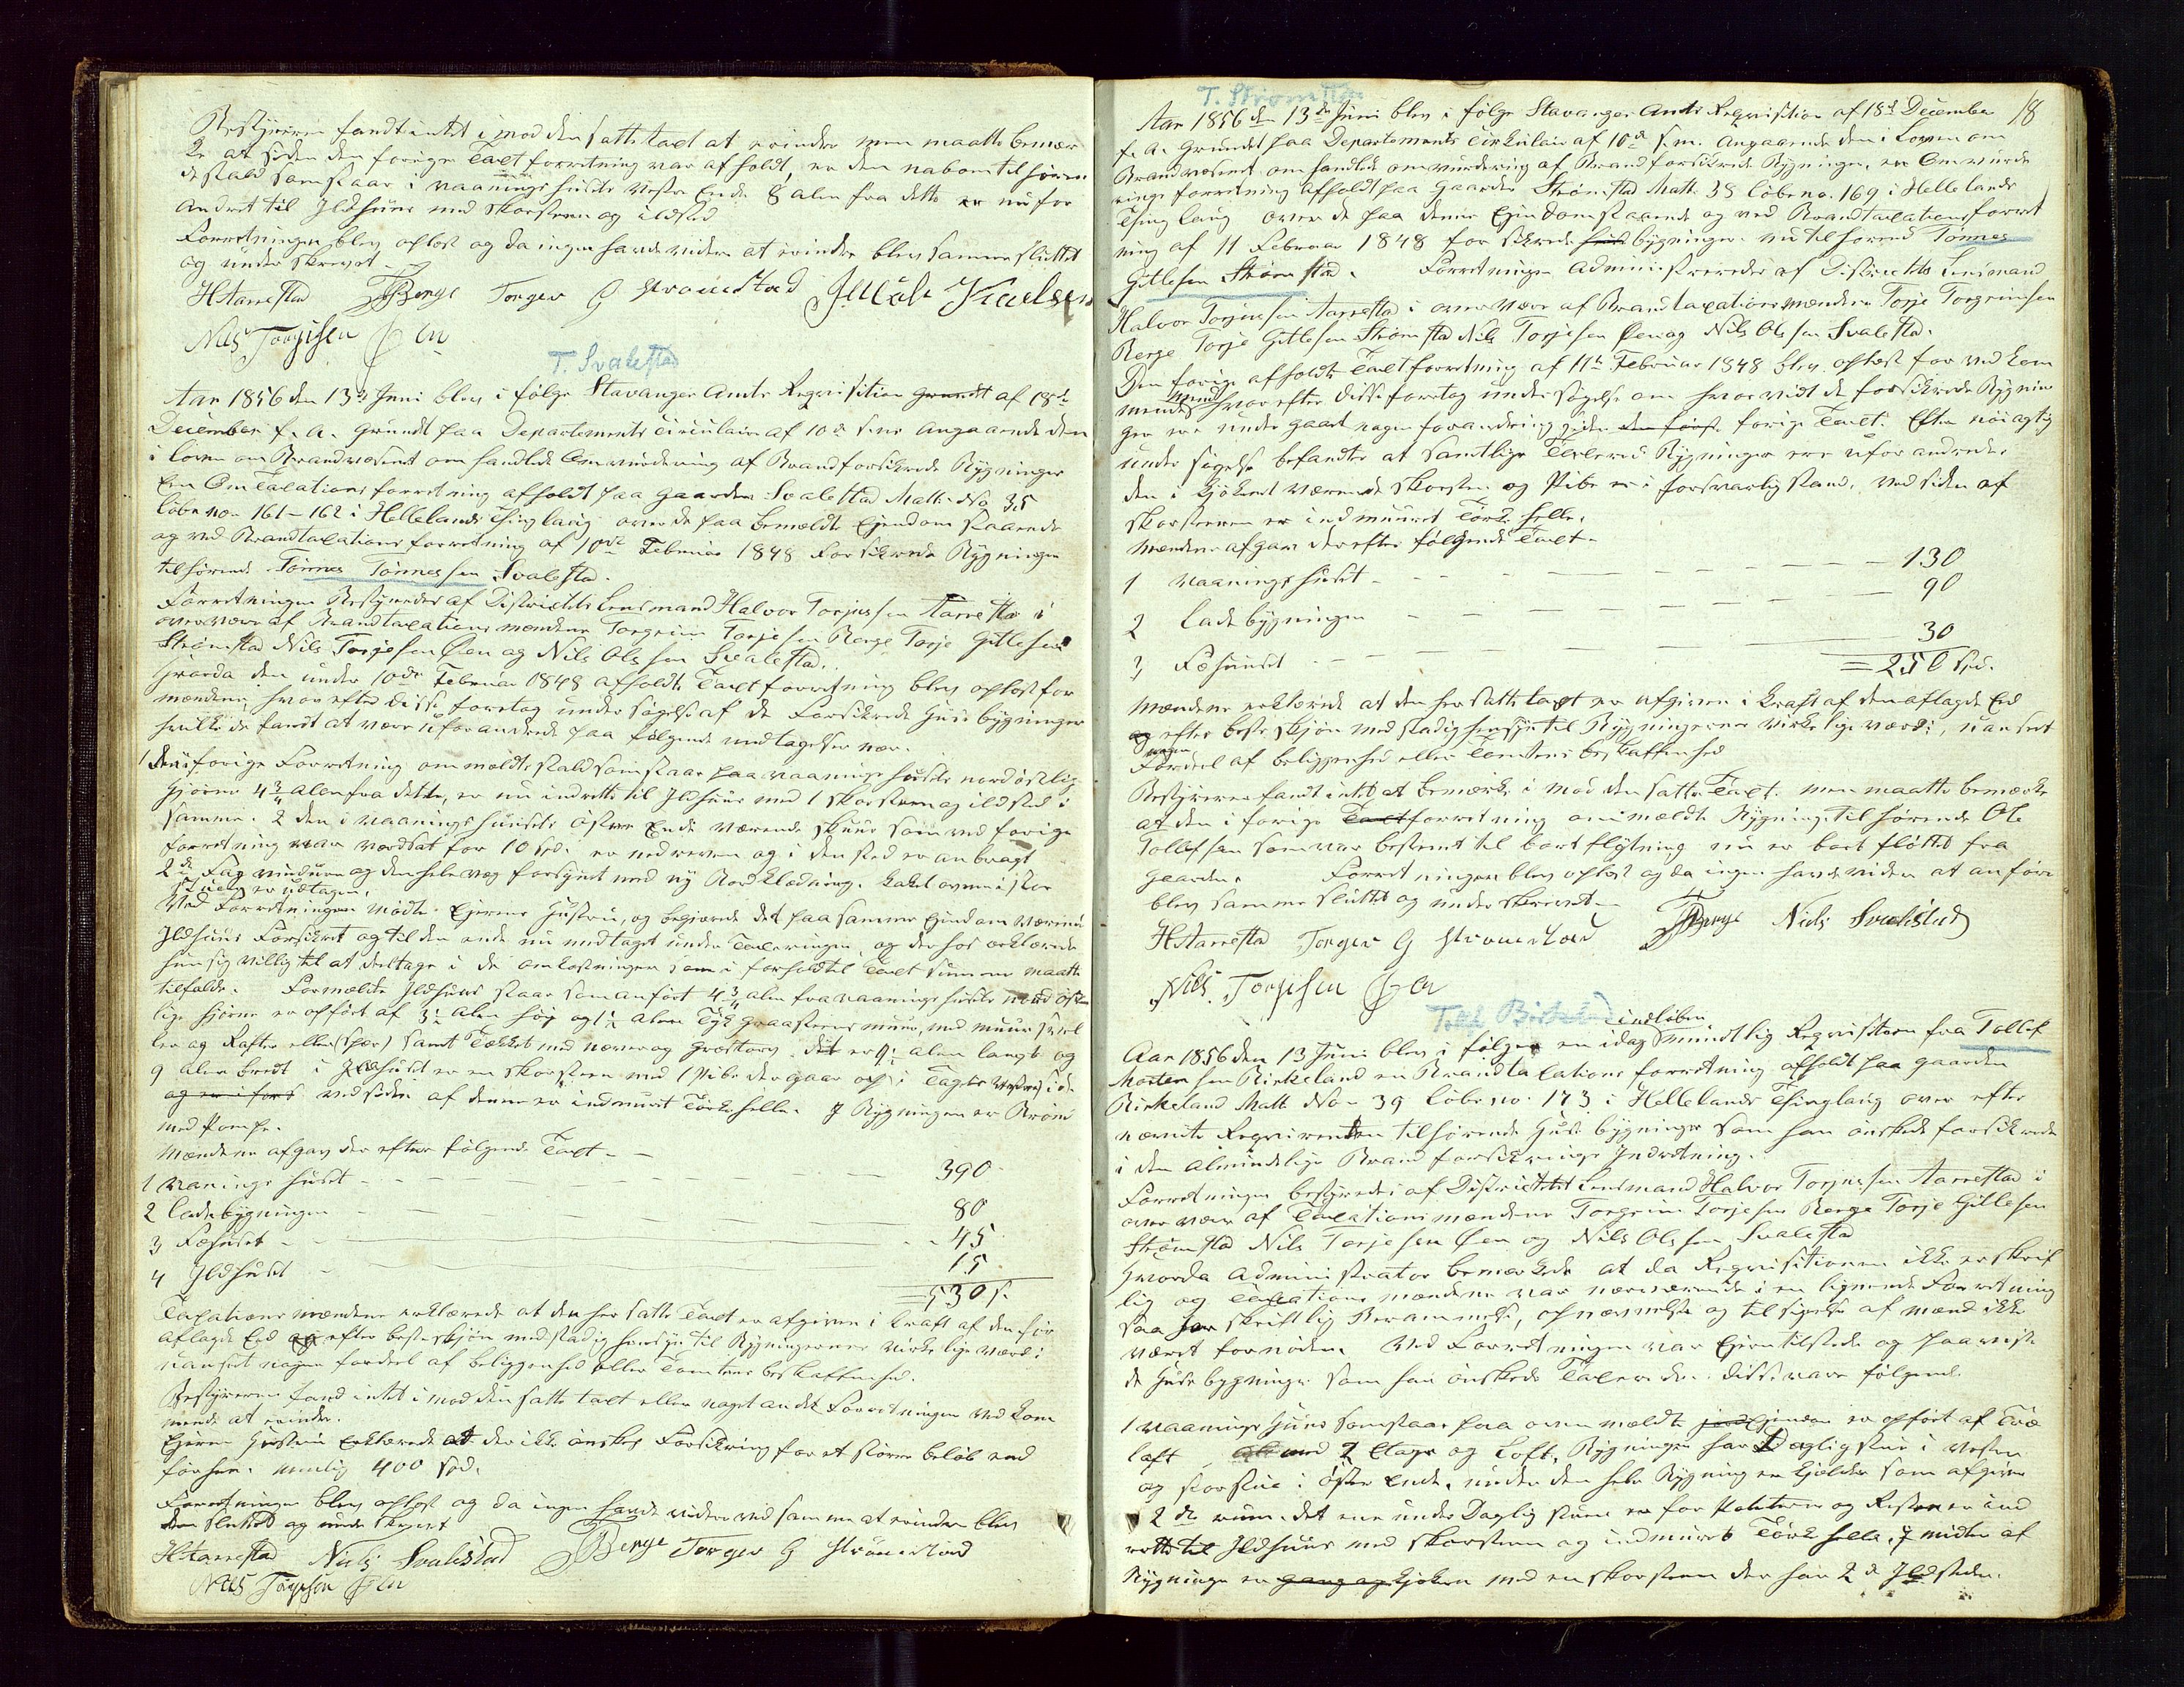 Bestyreren fandt intet imod den satte taxt at erindre men maatte bemær
ke at siden den forrige Taxtforretning var afholdt, er den nabom tilhøren
de stald som staar i Vaaningshusets vestre Ende 8 alen fra dette er nu for
andret til Ildhuus med skorsteen og ildsted
Forretningen blev oplæst og da ingen havde videre at erindre blev samme sluttet
og underskrevet.
HAarrestad TTBerge Torger G Strømstad
Nils Torgisen Øen
T. Svalestad
Aar 1856 den 13de Juni blev i følge Stavanger Amts Reqvisition grundt af 18de
December f. A. grundet paa Departements Circulaire af 10de s.m. angaaende den
i loven om Brandvæsenet omhandlede Omvurdering af Brandforsikrede Bygninger
en Om Taxationsforretning afholdt paa Gaarden Svalestad Matr. No 35
løbe no. 161-162 i Hellelands Thinglaug over de paa bemældte Ejendom staaende
og ved Brandtaxationsforretning af 10de Februar 1848 forsikrede Bygninger
tilhørende Tønnes Tønnessen Svalestad.
Forretningen Bestyredes af Districtets Lensmand Halvor Torjussen Aarrestad i
overvær af Brandtaxationsmændene Torgrim Torjesen Berge Torje Gitlesen
Strømstad Nils Torjesen Øen og Nils Olsen Svalestad.
Hvorda den under 10de Februar 1848 afholdte Taxtforretning blev oplæst for
mændene, hvorefter disse foretog undersøgelse af de Forsikrede Huusbygninger
hvilke de fandt at være uforandrede paa følgende undtagelser nær.
1 den i forrige Forretning ommældte stald som staar paa vaaningshusets nordøstlige
hjørne 4 3/4 Alen fra dette, er nu indrettet til Ildhuus med 1 skorsteen og ildsted i
samme. 2 den i vaaningshusets østre Ende værende skuur som ved forrige
forretning var værdsat for 10 spd. er nedreven og i den sted er anbragt
2de fag vinduer og den hele væg forsynet med ny Bordklædning. Kakelovnen i stor
stuen er udtagen.
Ved Forretningen mødte Ejerens Hustru, og begjærede det paa samme Ejendom værende
Ildhuus Forsikret og til den ende nu medtaget under Taxeringen, og derhos erklærede
hun sig villig til at deeltage i de omkostninger som i forhold til Taxtsummen maatte
tilfalde. Formældte Ildhuus staar som anført 4 3/4 alen fra vaaningshusets nordøst
lige hjørne er opført af 3 1/2 Alen høj og 1 1/2 Alen tyk graasteensmuur, med muursviel
ler og Rafter eller (Spær) samt Tækket med næver og græstorv dit er 9 1/2 alen langt og
9 alen bredt i Ildhuset er en skorsteen med 1 Pibe der gaar op i Taget
og er i fors ved siden af denne er indmuret Tørkehelle. I Bygningen er Brønd
med Pompe.
Mændene afgav der efter følgende Taxt.
1 Vaaningshuset 390
2 Ladebygningen 80
3 Fæhuset 45
4 Ildhuset 15
= 530 s.
Taxationsmændene erklærede at den her satte Taxt er afgiven i Kraft af den før
aflagte Eed og efter beste skjøn med stadig hensyn til Bygningernes virkelige værdi
uanseet nogen fordeel af beliggenhed eller Tomtens beskaffenhed.
Bestyreren fand intet imod den satte taxt eller noget andet Forretningen vedkom
mende at erindre.
Ejeren Hustru Erklærede at der ikke ønskes Forsikring for et større beløb end
før her. nemlig 400 spd.
Forretningen blev oplæst og da ingen havde videre ved samme at erindre blev
den sluttet og underskrevet
HAarrestad Niels Svalestad TTBerge Torger G Strømstad
Nils Torgisen Øen
T. Strømstad
18
Aar 1856 den 13de Juni blev i følge Stavanger Amts Reqvisition af 18de December
f. A. Grundet paa Departements Cirkulair af 10de s.m. Angaaende den i Loven om
Brandvæsenet omhandlede omvurdering af Brandforsikrede Bygninger, en Omvurde
rings forretning afholdt paa gaarden Strømstad Matr. 38 løbe no. 169 i Hellelands
Thinglaug over de paa denne Ejendom staaende og ved Brandtaxationsforret
ning af 11 Februar 1848 forsikrede huus bygninger nu tilhørend Tønnes
Gitlesen Strømstad. Forretningen administreredes af Districtets Lensmand
Halvor Torjussen Aarrestad i overvær af Brandtaxationsmændene Torje Torgrimsen
Berge Torje Gitlesen Strømstad Nils Torjesen Øen og Nils Olsen Svalestad.
Den forrige afholdte Taxtforretning af 11te Februar 1848 blev oplæst for vedkom
mende mænd hvorefter disse foretog undersøgelse om hvorvidt de forsikrede Bygnin
ger ere undergaaet nogen forandring siden den først forrige Taxt. Efter nøiagtig
undersøgelse befandtes at samtlige Taxerede Bygninger ere uforandrede.
den i Kjøkenet værende skorsteen og Pibe er i forsvarlig stand. Ved siden af
skorsteenen er indmuuret Tørkehelle.
Mændene afgav derefter følgende Taxt.
1 Vaaningshuset 130
2 Ladebygningen 90
3 Fæhuuset 30
= 250 Spd.
Mændene erklærede at den her satte taxt er afgiven i Kraft af den aflagde Eed
og efter beste skjøn med stadig hensyn til Bygningernes virkelige værdi, uanseet
nogen
Fordeel af beliggenhed eller Tomtens beskaffenhed
Bestyreren fandt intet at bemærke imod den satte Taxt. men maatte bemærke
at den i forrige Taxtforretning ommældte Bygning tilhørende Ole
Tollefsen som var bestemt til bortflytning nu er bortfløttet fra
gaarden. Forretningen blev oplæst og da ingen havde videre at anføre
blev samme sluttet og underskrevet.
HAarrestad Torger G Strømstad TTBerge Niels Svalestad
Nils Torgisen Øen
indløben
Aar 1856 den 13 Juni blev i følge en idag mundtlig Reqvisition fra Tollef
Mortensen Birkeland en Brandtaxationsforretning afholdt paa gaarden
Birkeland Matr No 39 Løbe no. 173 i Hellelands Thinglaug over efter
nævnte Reqvirenten tilhørende Huusbygninger som han ønskede forsikrede
i den Almindelige Brandforsikrings Indretning.
Forretningen bestyredes af Districtets Lensmand Halvor Torjussen Aarrestad i
overvær af Taxationsmændene Torgrim Torjesen Berge Torje Gitlesen
Strømstad Nils Torjesen Øen og Nils Olsen Svalestad
Hvorda Administrator bemærkede at da Reqvisitionen ikke er skrift
lig og Taxationsmændene var nærværende i en lignende Forretning
saa har skriftlig Berammelse, opnævnelse og tilsigelse af mænd ikke
været fornøden. Ved Forretningen var Ejeren tilstede og paaviste
de Huusbygninger som han ønskede Taxerede. disse vare følgende.
1 Vaaningshuus som staar paa ovenmældte jord Ejendom er opført af Træ
laft med 2 Etager og Loft, Bygningen har Dagligstue i vestre
og storstue i østre Ende. under den hele Bygning er Kjølder som afgiver
2de rum. det ene under Dagligstuen er for Poteterne og Resten er ind
rettet til Ildhuus med skorsteen og indmuret Tørkehelle. I midten af
Bygningen er gang og Kjøken med en skorsteen der har 2de Ildsteder.